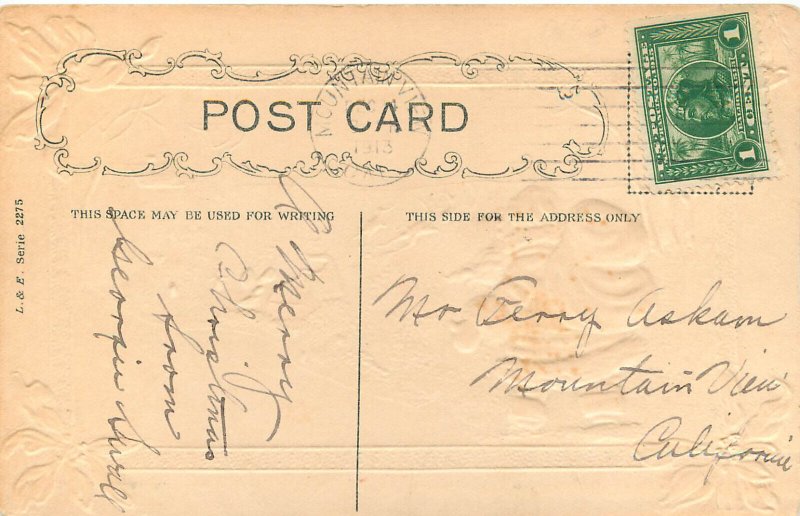 POST CARD
MOUNTAIN VI
1913
1 1
CENT
THIS SPACE MAY BE USED FOR WRITING
THIS SIDE FOR THE ADDRESS ONLY
L. & E. Serie 2275
A Merry
Christmas
from
Georgie Swall
Mr Perry Askam
Mountain View
California